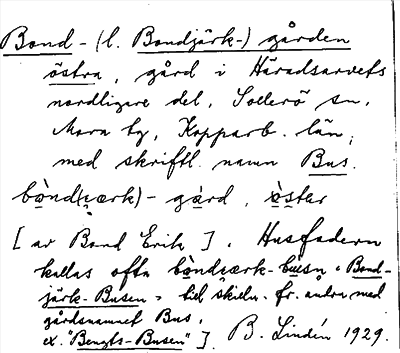 Bond- (l. Bondjärk-) gården
östra, gård i Häradsarvets
nordligare del, Sollerö sn,
Mora tg, Kopparb. län,
med skriftl. namn Bus.
bònd(ɩærk)-gård, ö̀ster
[av Bond Erik]. Husfadern
kallas ofta bòndɩærk-bùsn "Bond-
järk-Busen" till skilln. fr. andra med
gårdsnamnet Bus,
ex. "Bengts-Busen"] B. Lindén 1929.